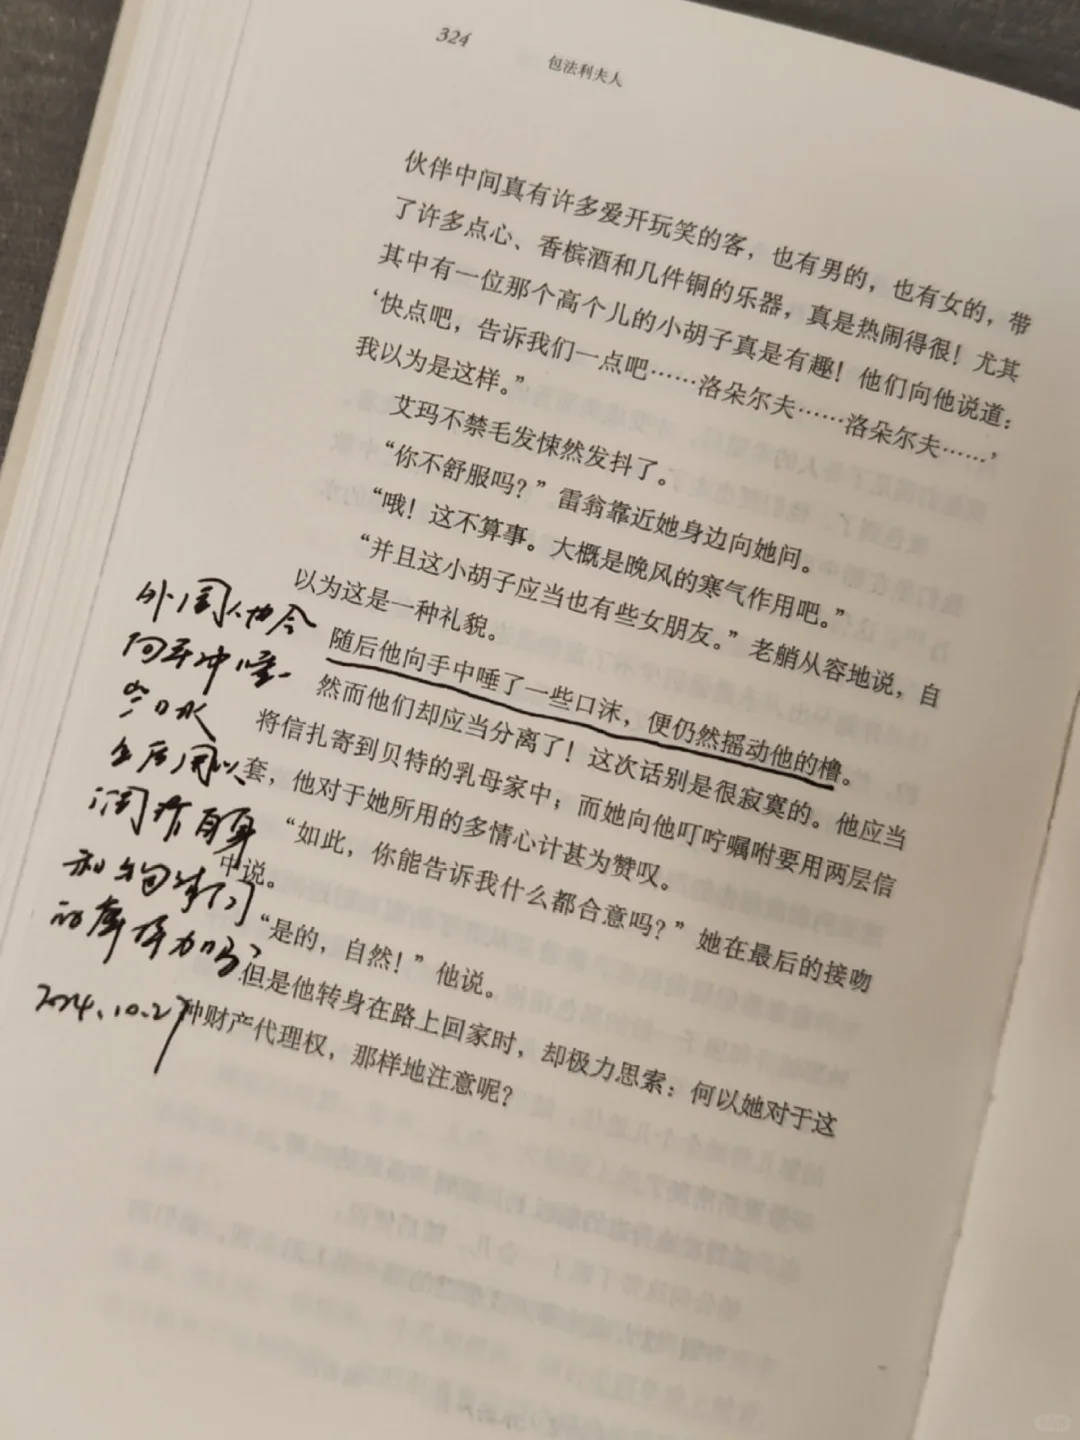 324
包法利夫人
伙伴中间真有许多爱开玩笑的客，也有男的，也有女的，带
了许多点心、香槟酒和几件铜的乐器，真是热闹得很！尤其
其中有一位那个高个儿的小胡子真是有趣！他们向他说道：
‘快点吧，告诉我们一点吧……洛朵尔夫……洛朵尔夫……’
我以为是这样。”
艾玛不禁毛发悚然发抖了。
“你不舒服吗？”雷翁靠近她身边向她问。
“哦！这不算事。大概是晚风的寒气作用吧。”
“并且这小胡子应当也有些女朋友。”老艄从容地说，自
以为这是一种礼貌。
随后他向手中唾了一些口沫，便仍然摇动他的橹。
然而他们却应当分离了！这次话别是很寂寞的。他应当
将信扎寄到贝特的乳母家中；而她向他叮咛嘱咐要用两层信
套，他对于她所用的多情心计甚为赞叹。
“如此，你能告诉我什么都合意吗？”她在最后的接吻
中说。
“是的，自然！”他说。
但是他转身在路上回家时，却极力思索：何以她对于这
种财产代理权，那样地注意呢？
外国人也会
向手中唾一
口水
润滑
和
的摩擦力吗？
2024.10.27